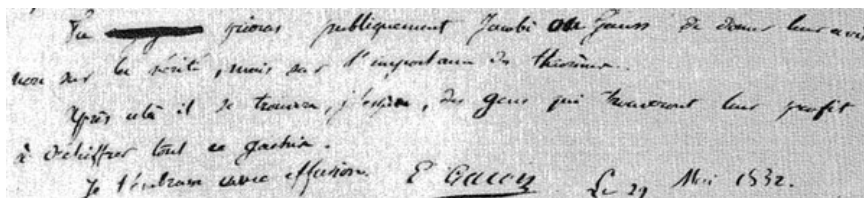 Tu prieras publiquement Jacobi ou Gauss de donner leur avis
non sur la vérité, mais sur l'importance des théorèmes.
Après cela il se trouvera, j'espère, des gens qui trouveront leur profit
à déchiffrer tout ce gachis.
Je t'embrasse avec effusion. E Galois Le 29 Mai 1832.